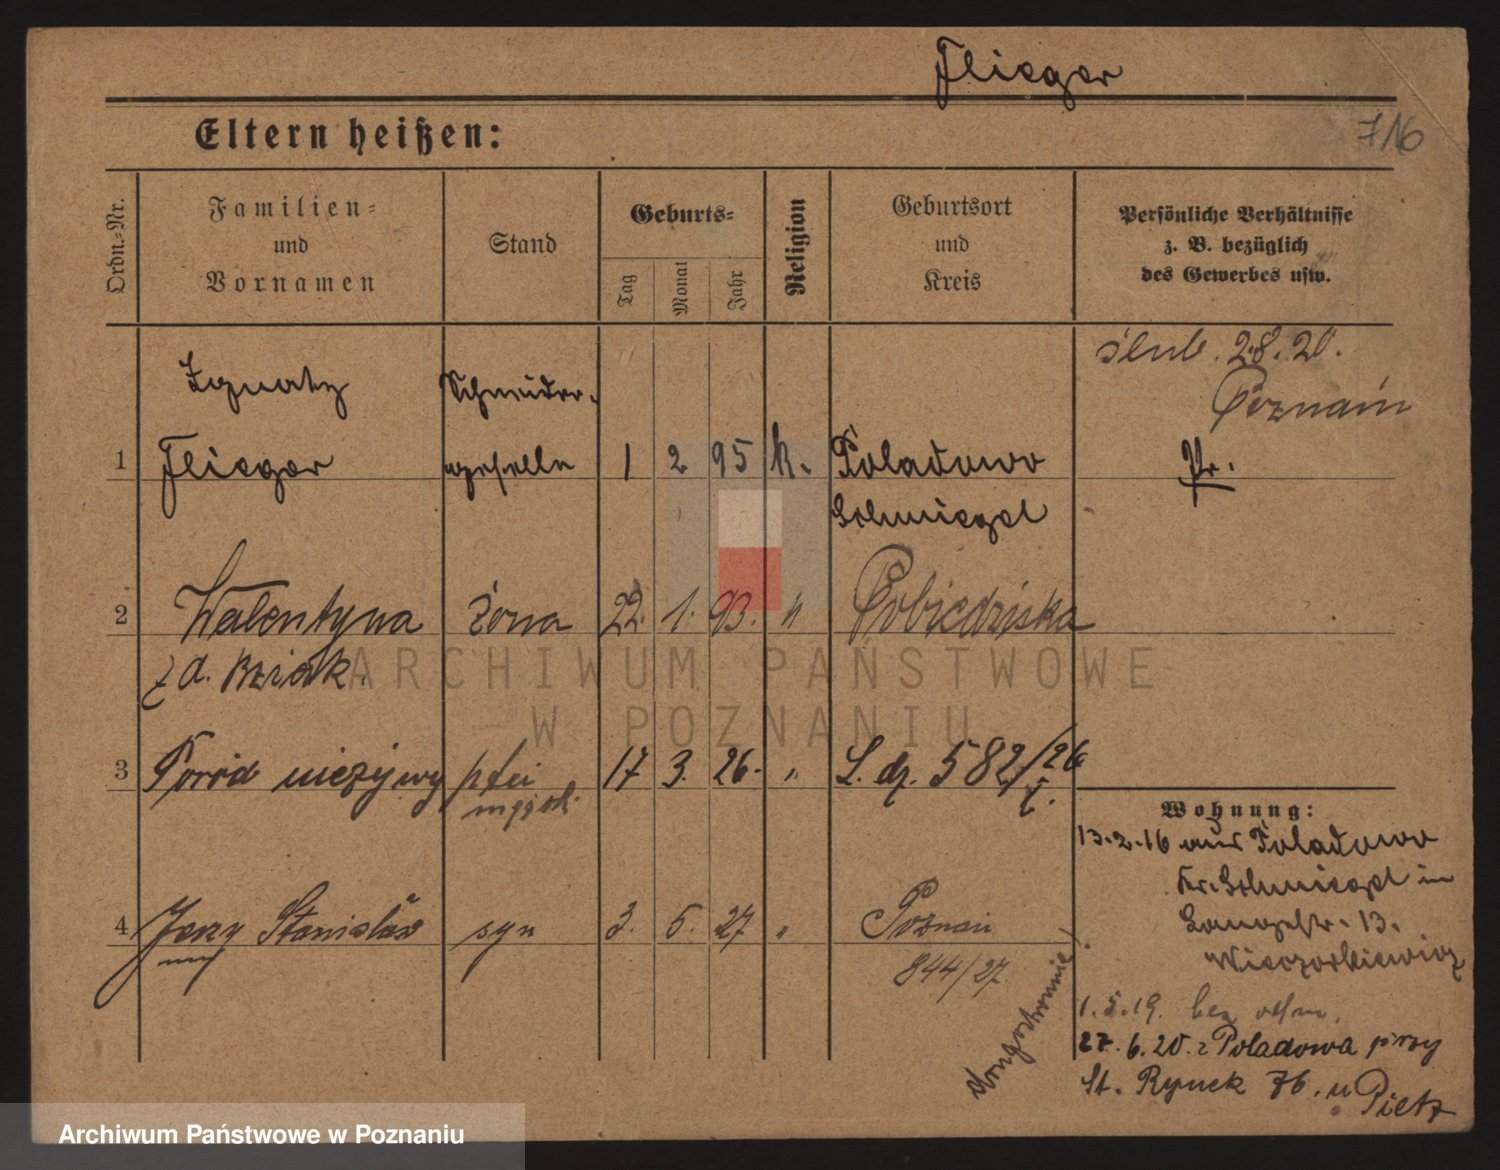 Flieger
716
Eltern heißen:
Ordn.-Nr.
Familien-
und
Vornamen
Stand
Geburts-
Tag
Monat
Jahr
Religion
Geburtsort
und
Kreis
Persönliche Verhältnisse
z. B. bezüglich
des Gewerbes usw.
ślub. 28.20.
Poznań
Ignatz Schneider-
1 Flieger geselle 1 2 95 k. Poladowo Pr.
Schmiegel
2 Walentyna żona 22. 1. 93. " Pobiedziska
z d. Bziak.
3 Poród nieżywy płci 17 3. 26. " L. dz. 582/26
męzok. I.
Wohnung:
13.2.16 aus Poladowo
Kr. Schmiegel in
Langestr. 13.
Wieczorkiewicz
4 Jerzy Stanisław syn 3. 5. 27 " Poznań
844/27.
1.5.19. bez
27.6.20. z Poladowa przy
St. Rynek 76. u Pietz
ARCHIWUM PAŃSTWOWE
W POZNANIU
Archiwum Państwowe w Poznaniu